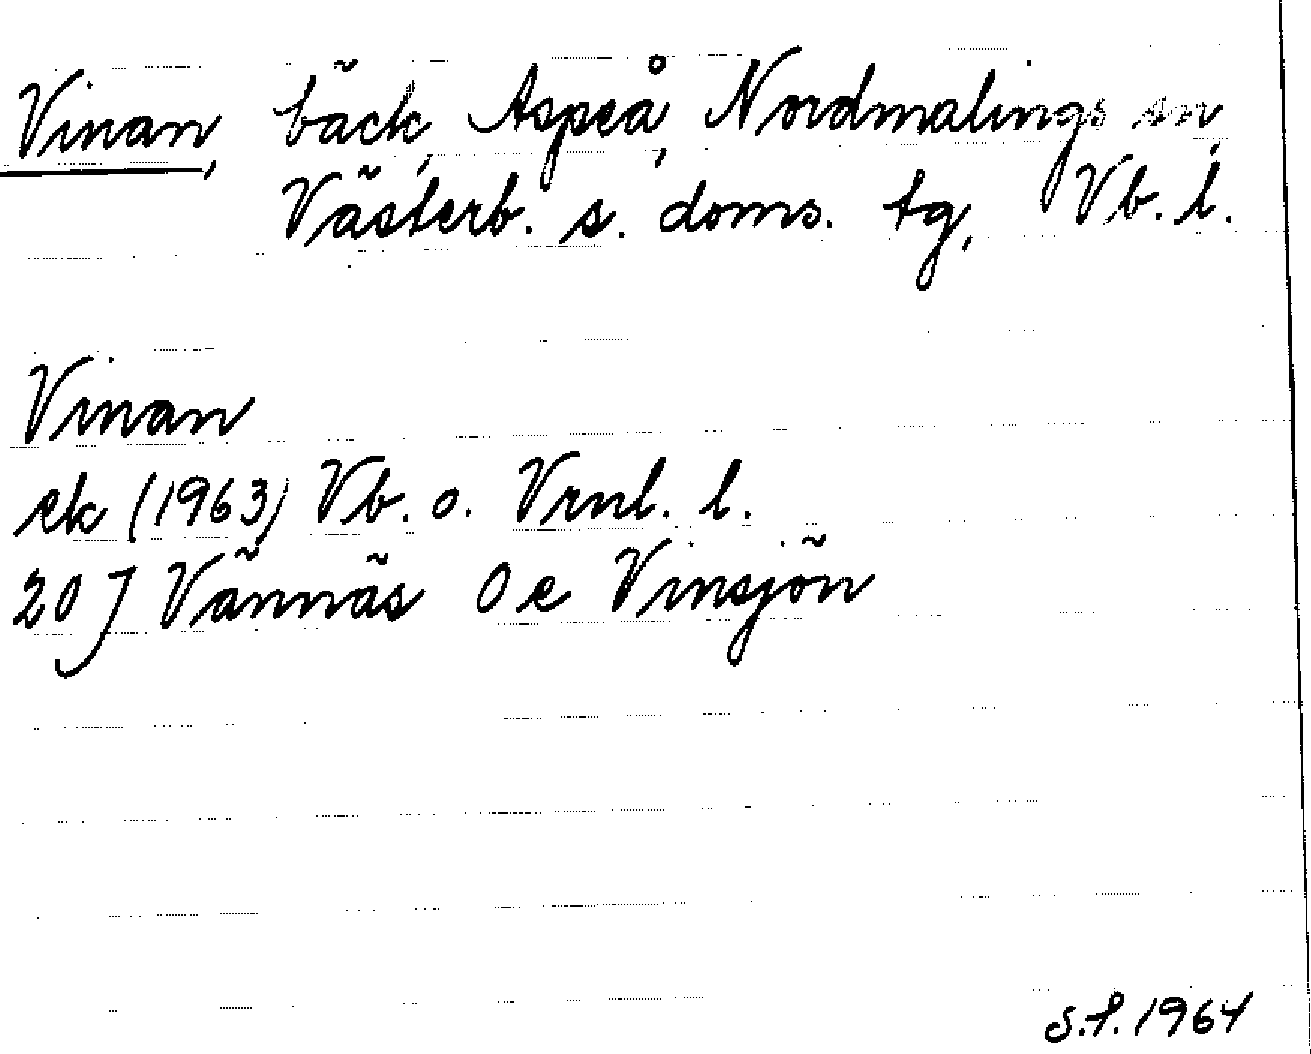 Vinan, bäck, Aspeå, Nordmalings sn,
Västerb. s. doms. tg, Vb. l.
Vinan
ek (1963) Vb. o. Vrnl. l.
20 J Vännäs 0 e Vinsjön
S.F. 1964